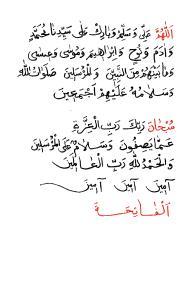 اللهم صل وسلم وبارك على سيدنا محمد
وآدم ونوح وإبراهيم وموسى وعيسى
وما بينهم من النبيين والمرسلين صلوات الله
وسلامه عليهم أجمعين
سبحان ربك رب العزة
عما يصفون وسلام على المرسلين
والحمد لله رب العالمين
آمين آمين آمين
الفاتحة